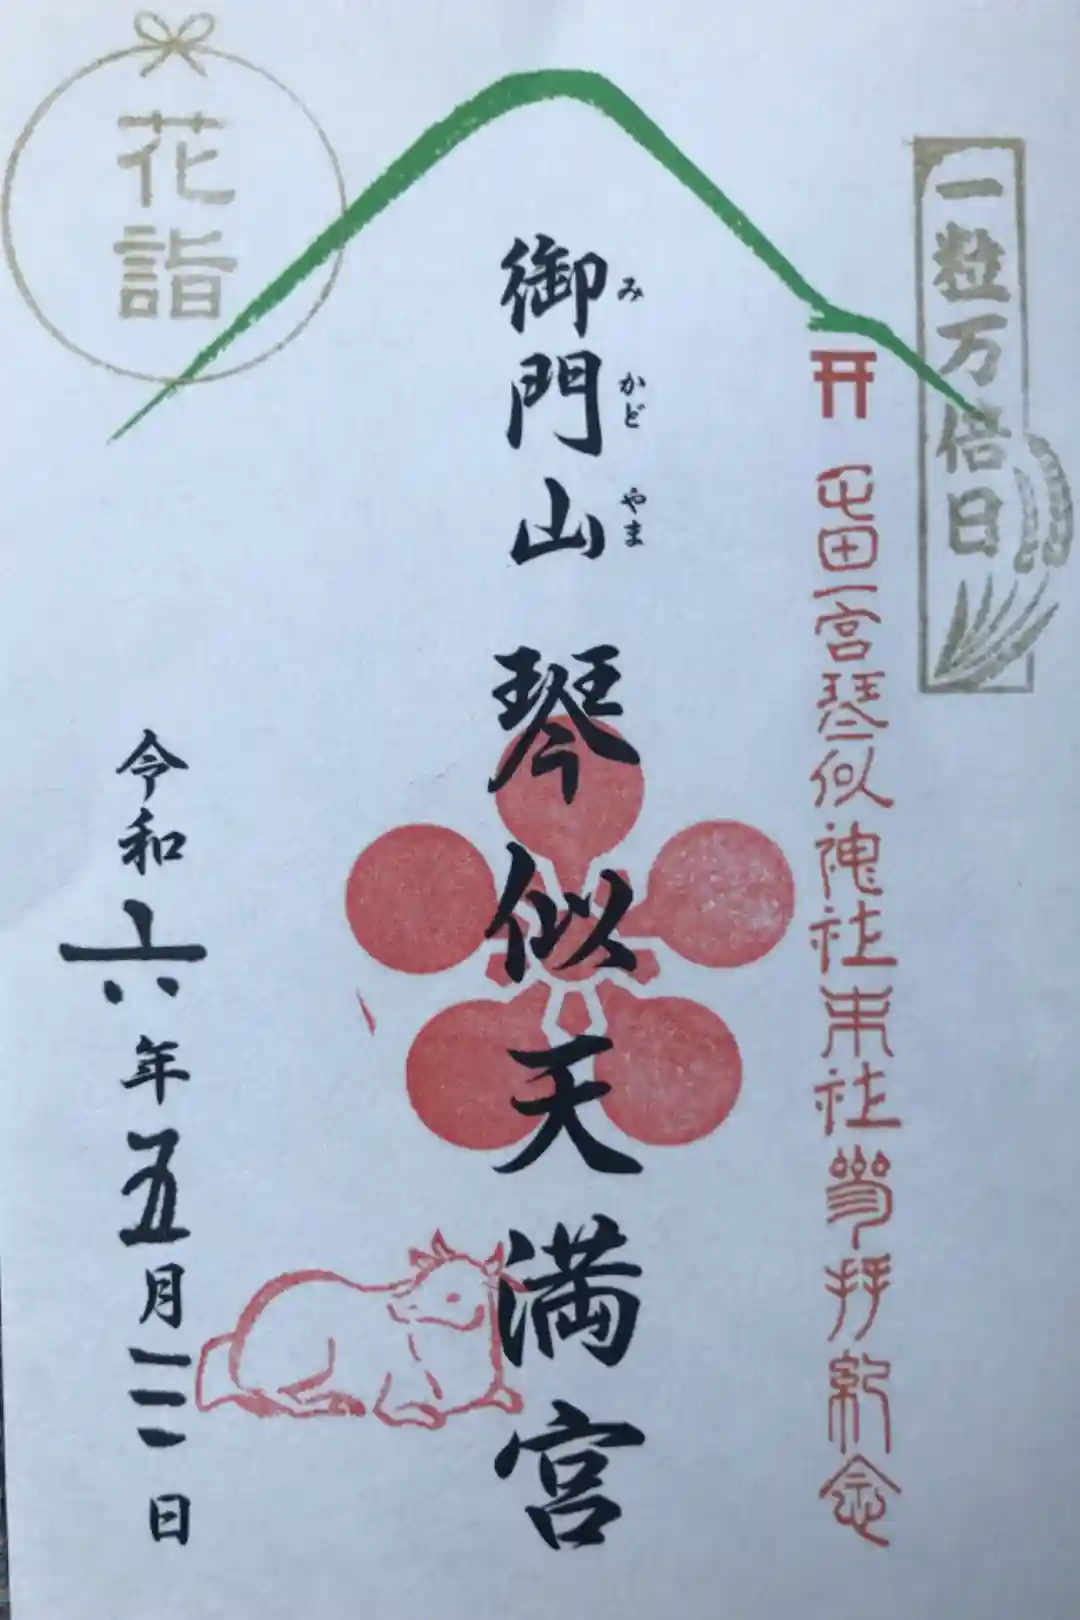 一粒万倍日
屯田一宮琴似神社末社参拝紀念
みかどやま
御門山 琴似天満宮
花詣
令和六年五月三日